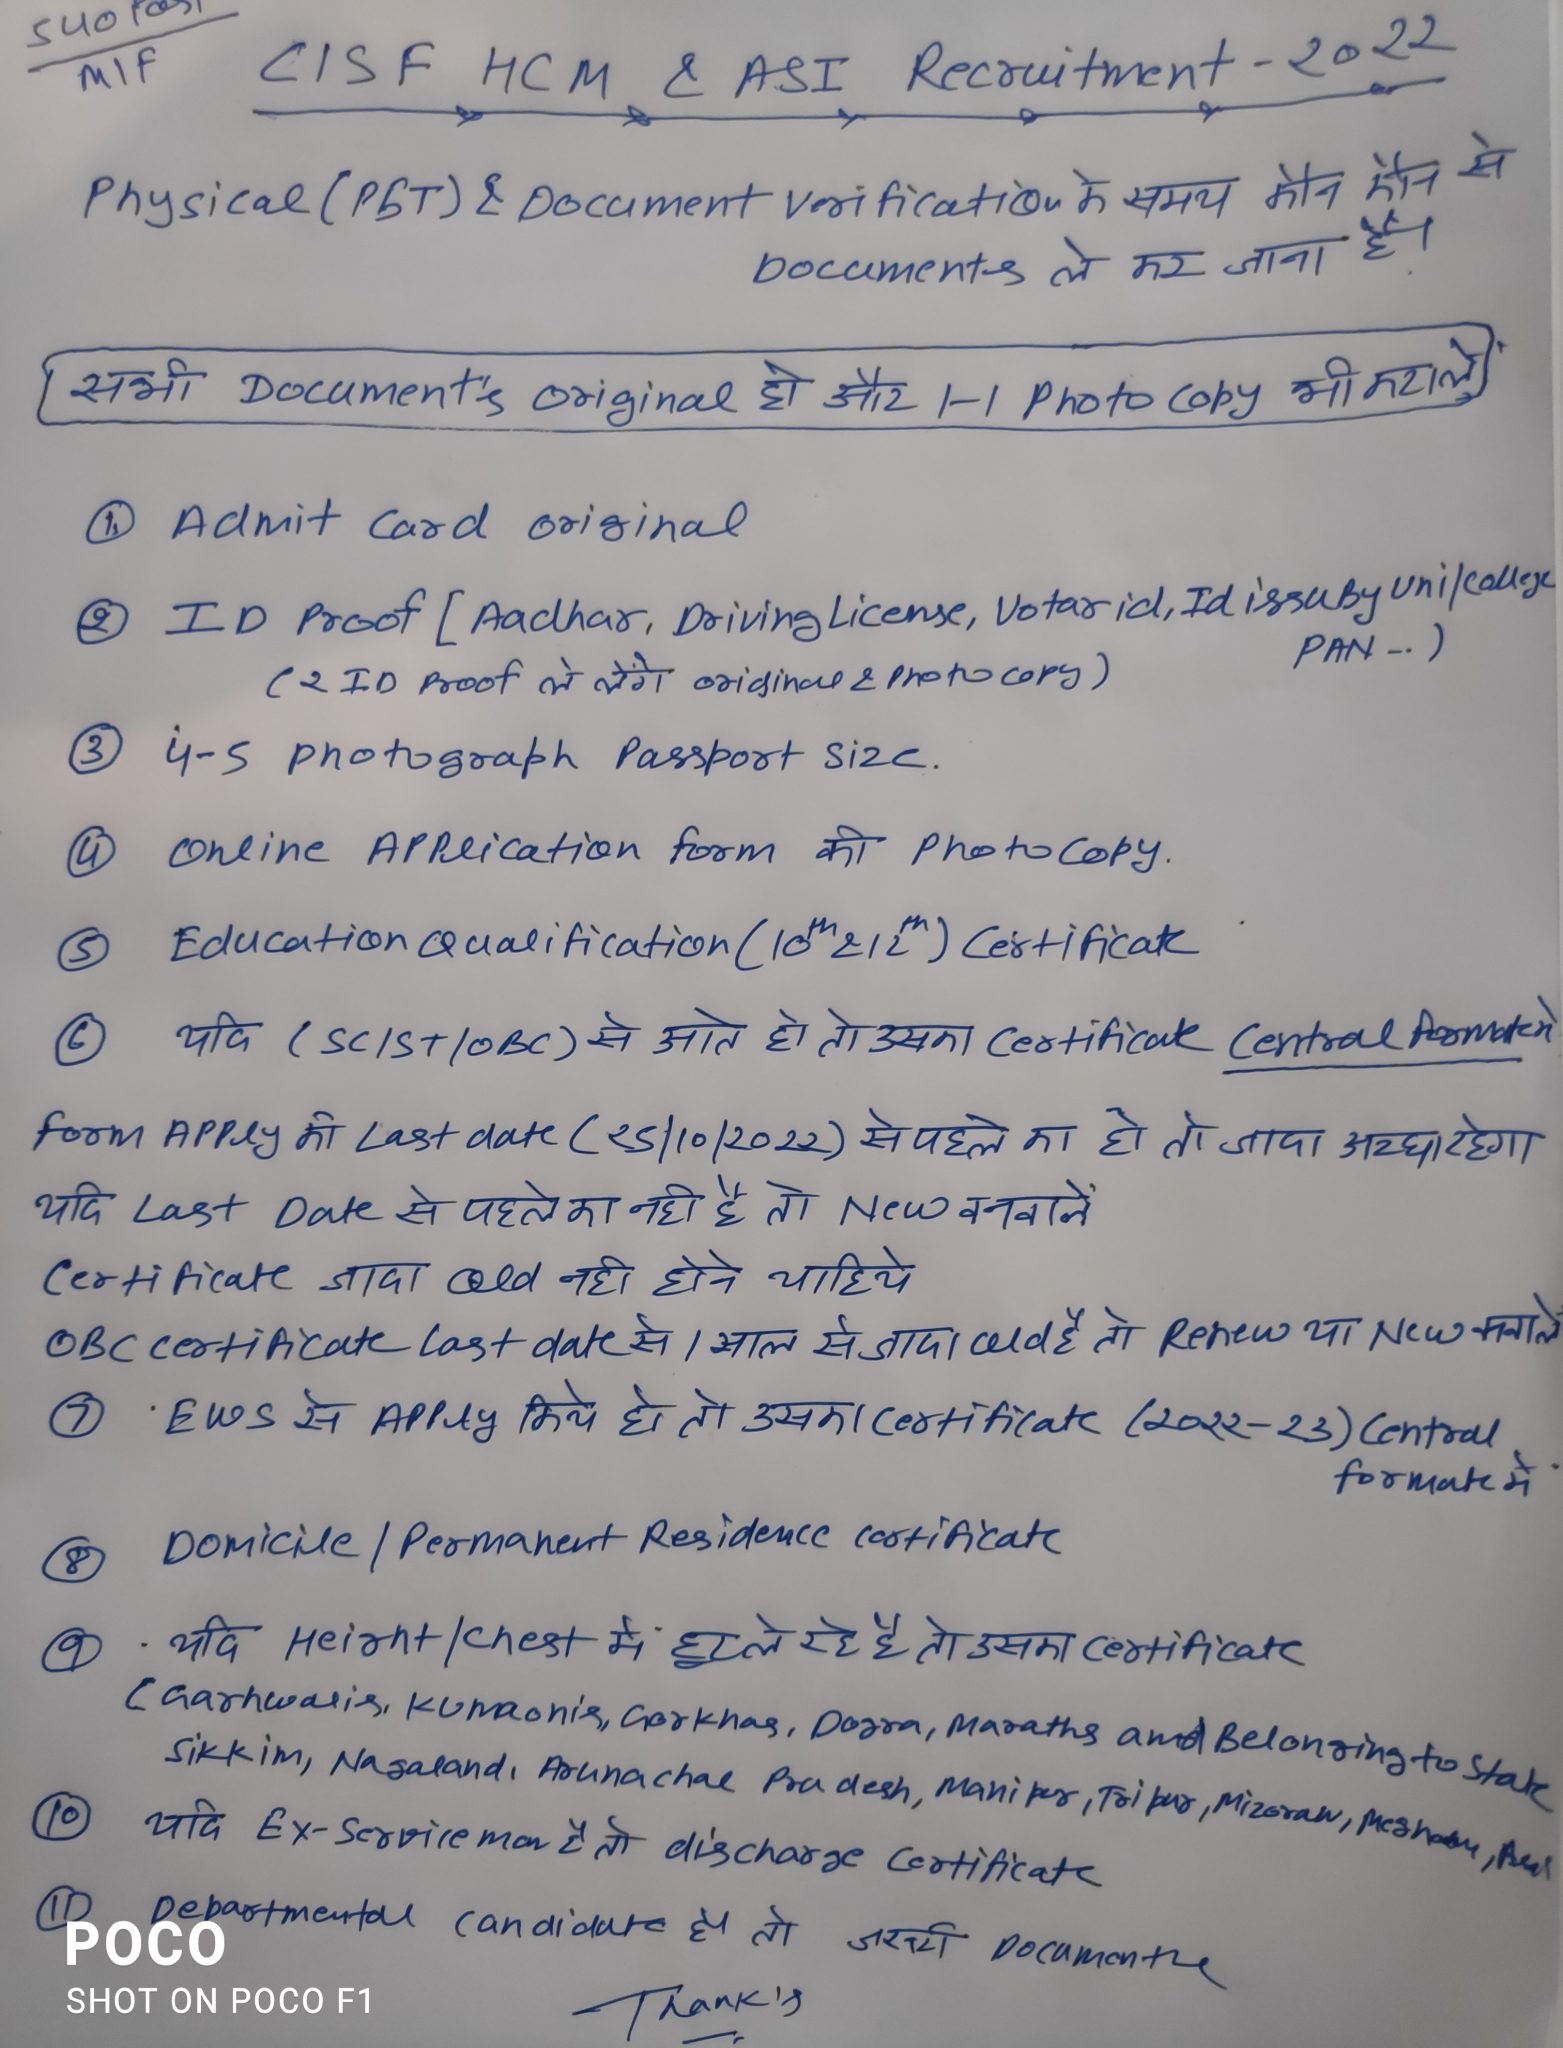 540 Post
M/F
CISF HCM & ASI Recruitment - 2022
Physical (PST) & Document Verification के समय कौन कौन से
Documents ले कर जाना है।
सभी Document's original हो और 1-1 Photo Copy भी कटालें
① Admit Card original
② ID Proof [Aadhar, Driving License, Votar id, Id issu By Uni/College
PAN -- )
(2 ID Proof ले लेंगे original & Photo copy)
③ 4-5 Photograph Passport Size.
④ Online Application form की Photo Copy.
⑤ Education Qualification (10th & 12th) Certificate
⑥ यदि (SC/ST/OBC) से आते हो तो उसका Certificate Central formate मे
form Apply की Last date (25/10/2022) से पहले का हो तो जादा अच्छा रहेगा
यदि Last Date से पहले का नही है तो New बनवालें
Certificate जादा old नही होने चाहिये
OBC certificate Last date से 1 साल से जादा old है तो Renew या New बनालें
⑦ EWS से Apply किये हो तो उसका Certificate (2022-23) Central
formate में
⑧ Domicile / Permanent Residence certificate
⑨ यदि Height/Chest में छूट ले रहे है तो उसका Certificate
(Garhwalis, Kumaonis, Gorkhas, Dogra, Maraths and Belonging to State
Sikkim, Nagaland, Arunachal Pradesh, Manipur, Tripur, Mizoram,
⑩ यदि Ex-Serviceman है तो discharge Certificate
⑪ Departmental candidate है तो जरूरी
Thank's
POCO
SHOT ON POCO F1